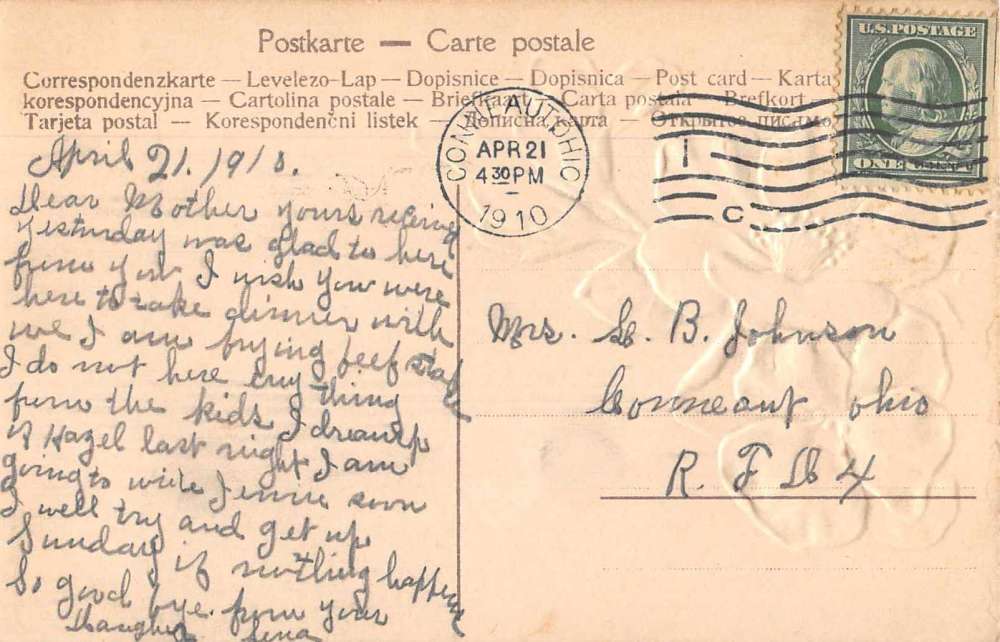 Postkarte — Carte postale
Correspondenzkarte — Levelezo-Lap — Dopisnice — Dopisnica — Post card — Karta
korespondencyjna — Cartolina postale — Briefkaart — Carta postala — Brefkort
Tarjeta postal — Korespondenčni listek — Дописна карта — Открытое письмо
U.S. POSTAGE
ONE CENT
CONNEAUT, OHIO
APR 21
4 30 PM
1910
1
C
April 21. 1910.
Dear Mother yours
yesturday was glad to here
from you I wish you were
here to take dinner with
me I am frying beef
I do not here eny thing
from the kids I
of Hazel last night I am
going to write Jennie soon
I well try and get up
Sunday if nothing happens
So good bye. from your
Daughter Lena
Mrs. L. B. Johnson
Conneaut ohio
R. F D 4